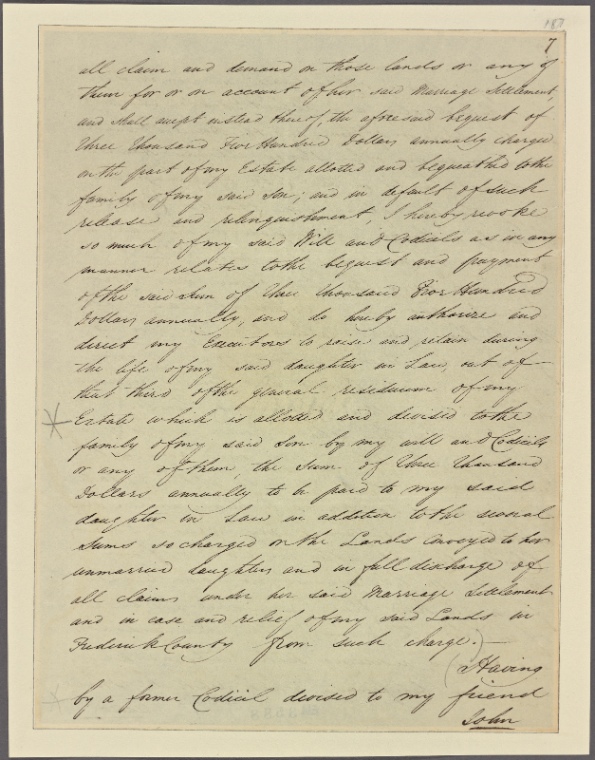 187
7
all claim and demand on those lands or any of
them for or on account of her said Marriage Settlement,
and shall accept instead thereof, the aforesaid bequest of
three thousand Five Hundred Dollars annually charged
on the part of my Estate allotted and bequeathed to the
family of my said Son; and in default of such
release and relinquishment, I hereby revoke
so much of my said Will and Codicils as in any
manner relates to the bequest and payment
of the said Sum of three thousand Five Hundred
Dollars annually, and do hereby authorize and
direct my Executors to raise and retain during
the life of my said daughter in Law, out of
that third of the general residuum of my
Estate which is allotted and devised to the
family of my said Son by my will and Codicils
or any of them, the Sum of three thousand
Dollars annually to be paid to my said
daughter in Law in addition to the several
Sums so charged on the Lands conveyed to her
unmarried Daughters and in full discharge of
all claims under her said Marriage Settlement
and in ease and relief of my said Lands in
Frederick County from such charge.—
Having
by a former Codicil devised to my friend
John